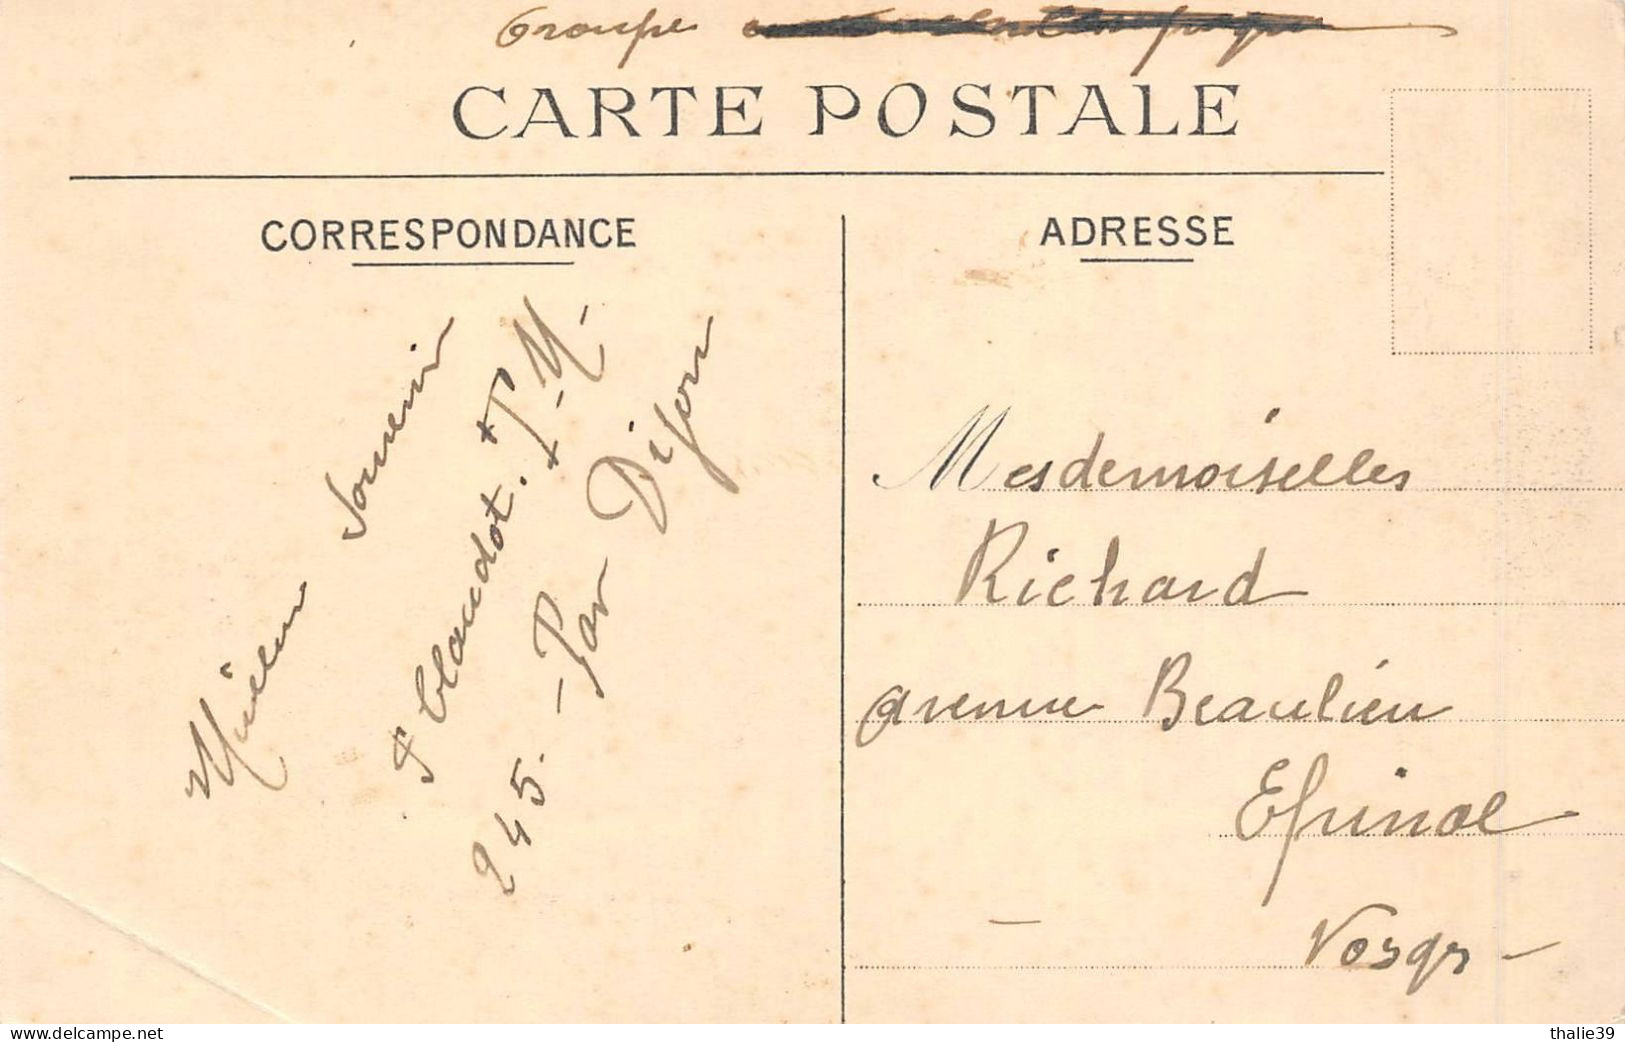 Groupe
CARTE POSTALE
CORRESPONDANCE
ADRESSE
Meilleur Souvenir
P Claudot. T. M.
245. - Par Dijon
Mesdemoiselles
Richard
avenue Beaulieu
Epinal
- Vosges -
www.delcampe.net
thalie39